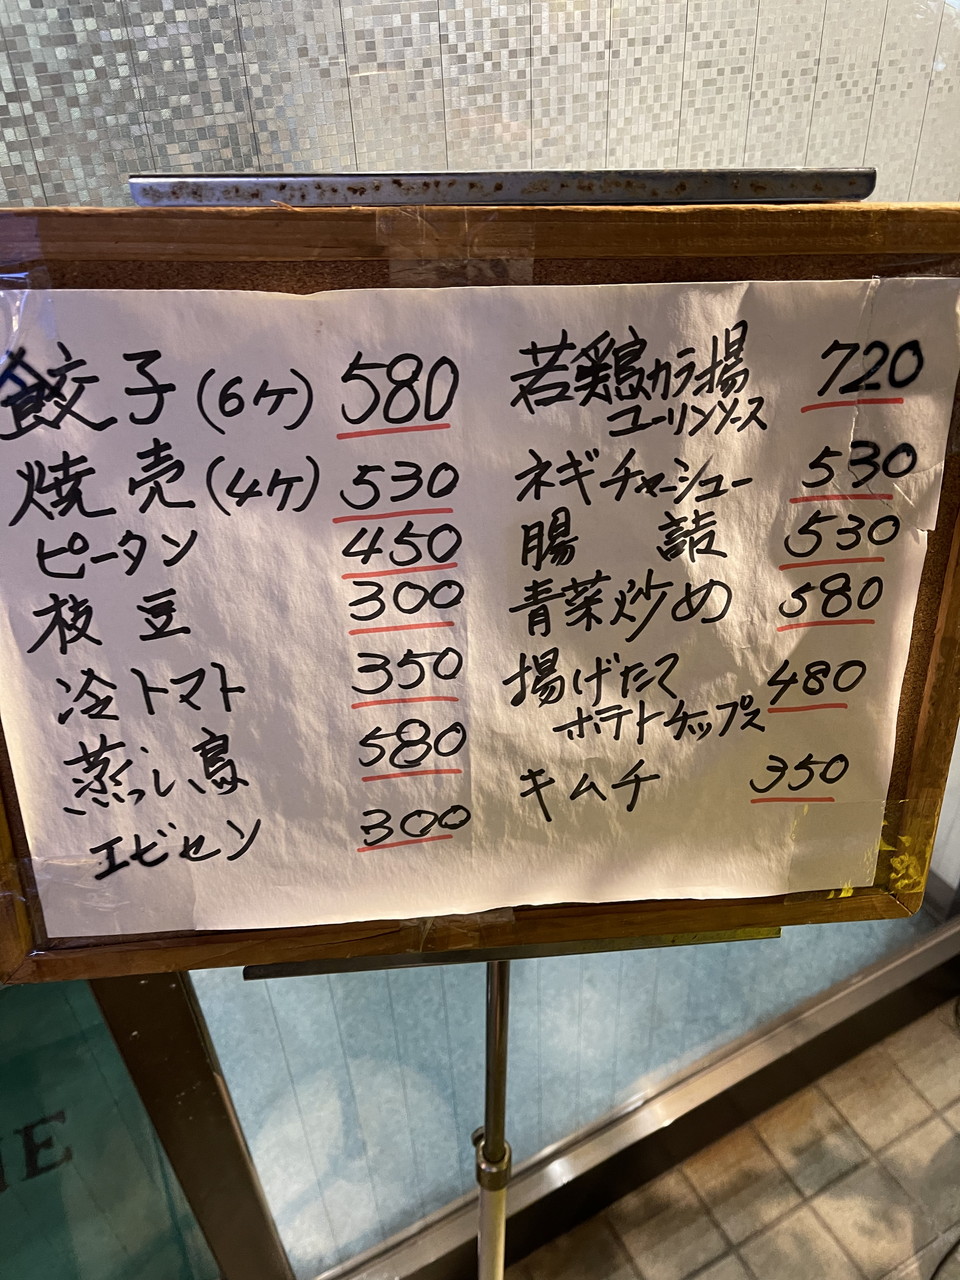 餃子(6ヶ) 580
焼売(4ヶ) 530
ピータン 450
枝豆 300
冷トマト 350
蒸し鳥 580
エビセン 300
若鶏カラ揚 720
ユーリンソース
ネギチャーシュー 530
腸詰 530
青菜炒め 580
揚げたて 480
ポテトチップス
キムチ 350